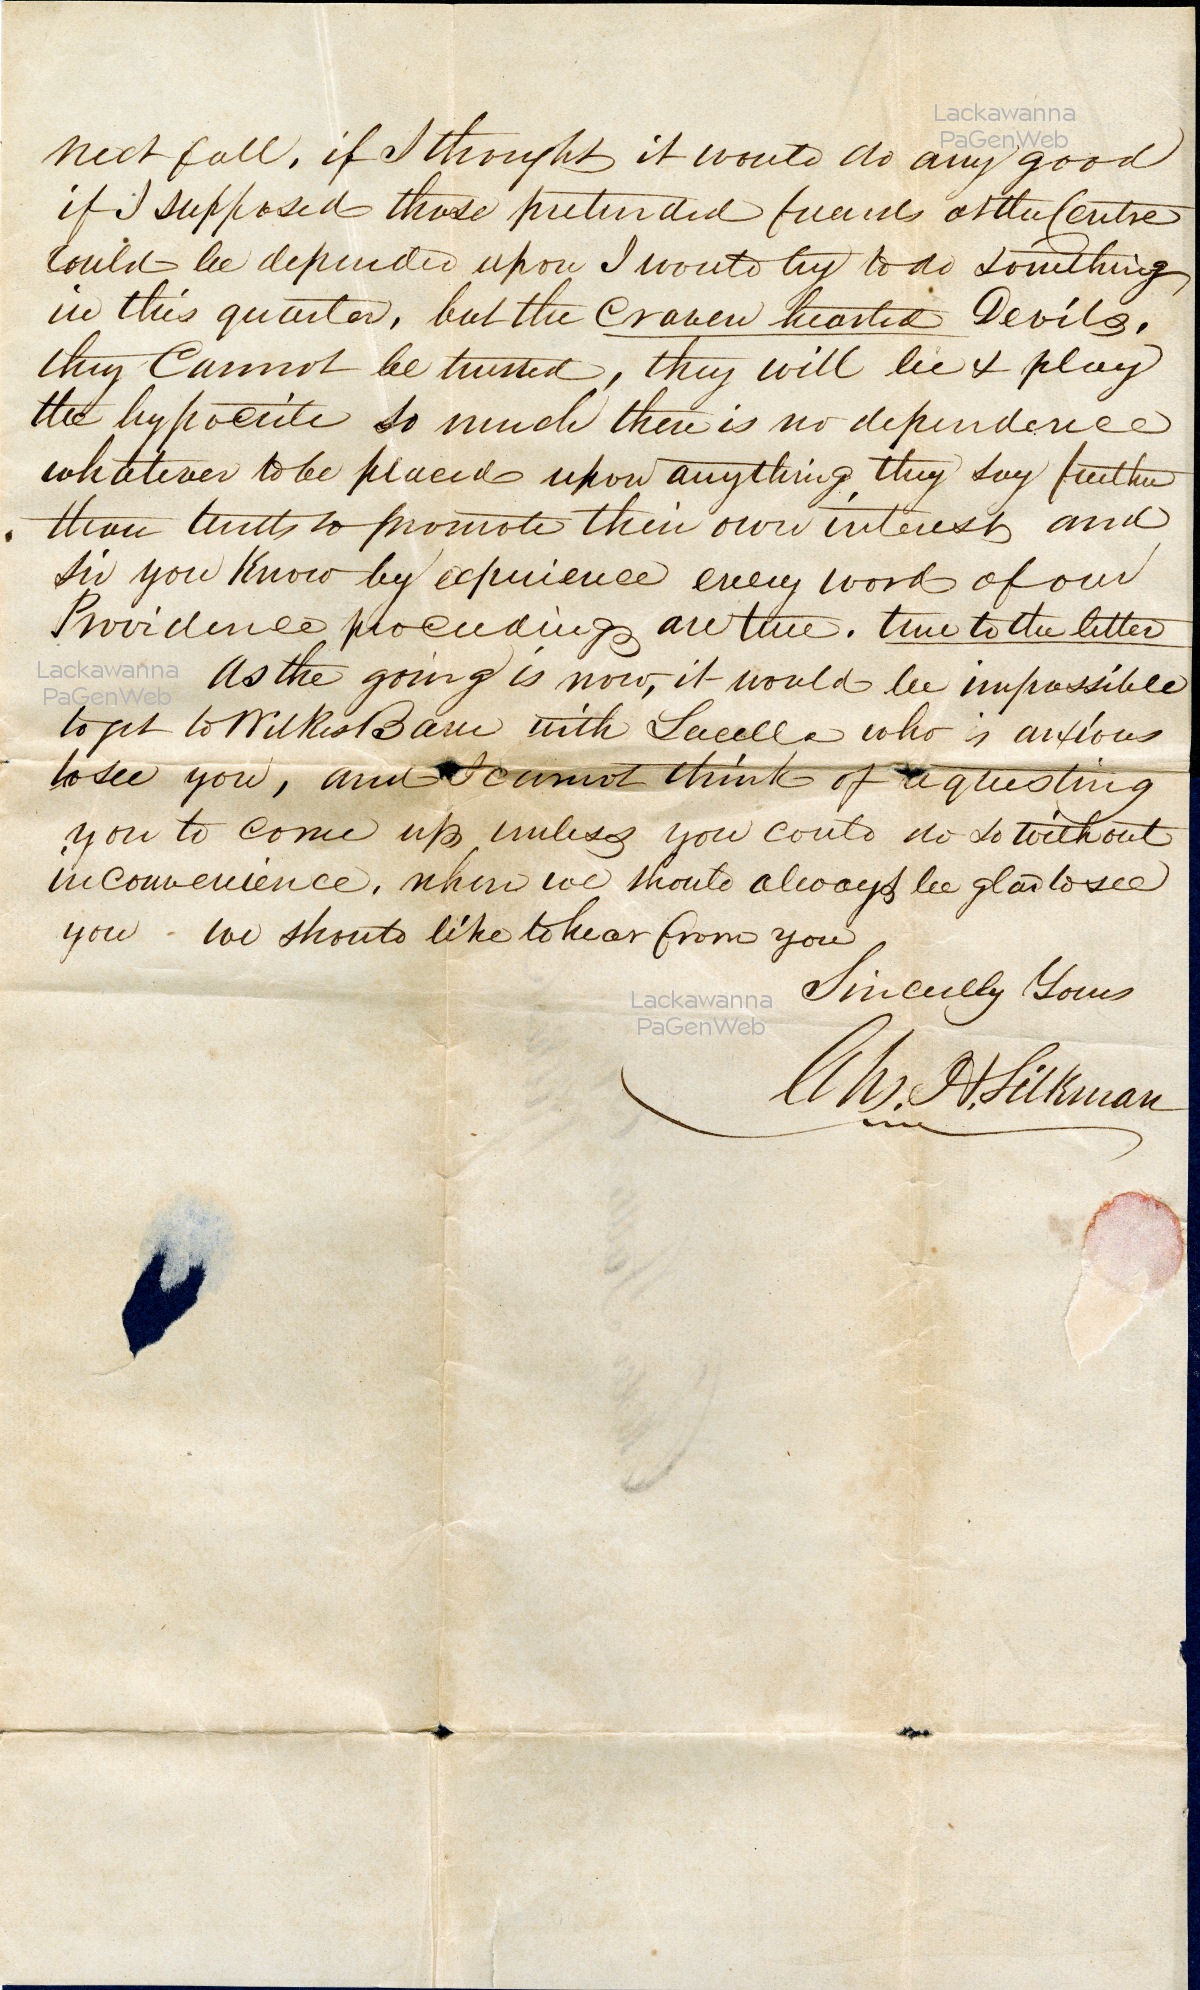 Lackawanna
PaGenWeb
next fall, if I thought it would do any good
if I supposed those pretended friends at the Centre
could be depended upon I would try to do something
in this quarter, but the craven hearted Devils,
they Cannot be trusted, they will lie & play
the hypocrite so much there is no dependence
whatever to be placed upon anything they say further
than tends to promote their own interest, and
sir you Know by experience every word of our
Providence proceedings are true. true to the letter
Lackawanna
PaGenWeb
As the going is now, it would be impossible
to get to Wilkes Barre with Lucella who is anxious
to see you, and I cannot think of requesting
you to come up unless you could do so without
inconvenience, when we should always be glad to see
you - we should like to hear from you
Sincerely Yours
Lackawanna
PaGenWeb
Chs. H. Silkman